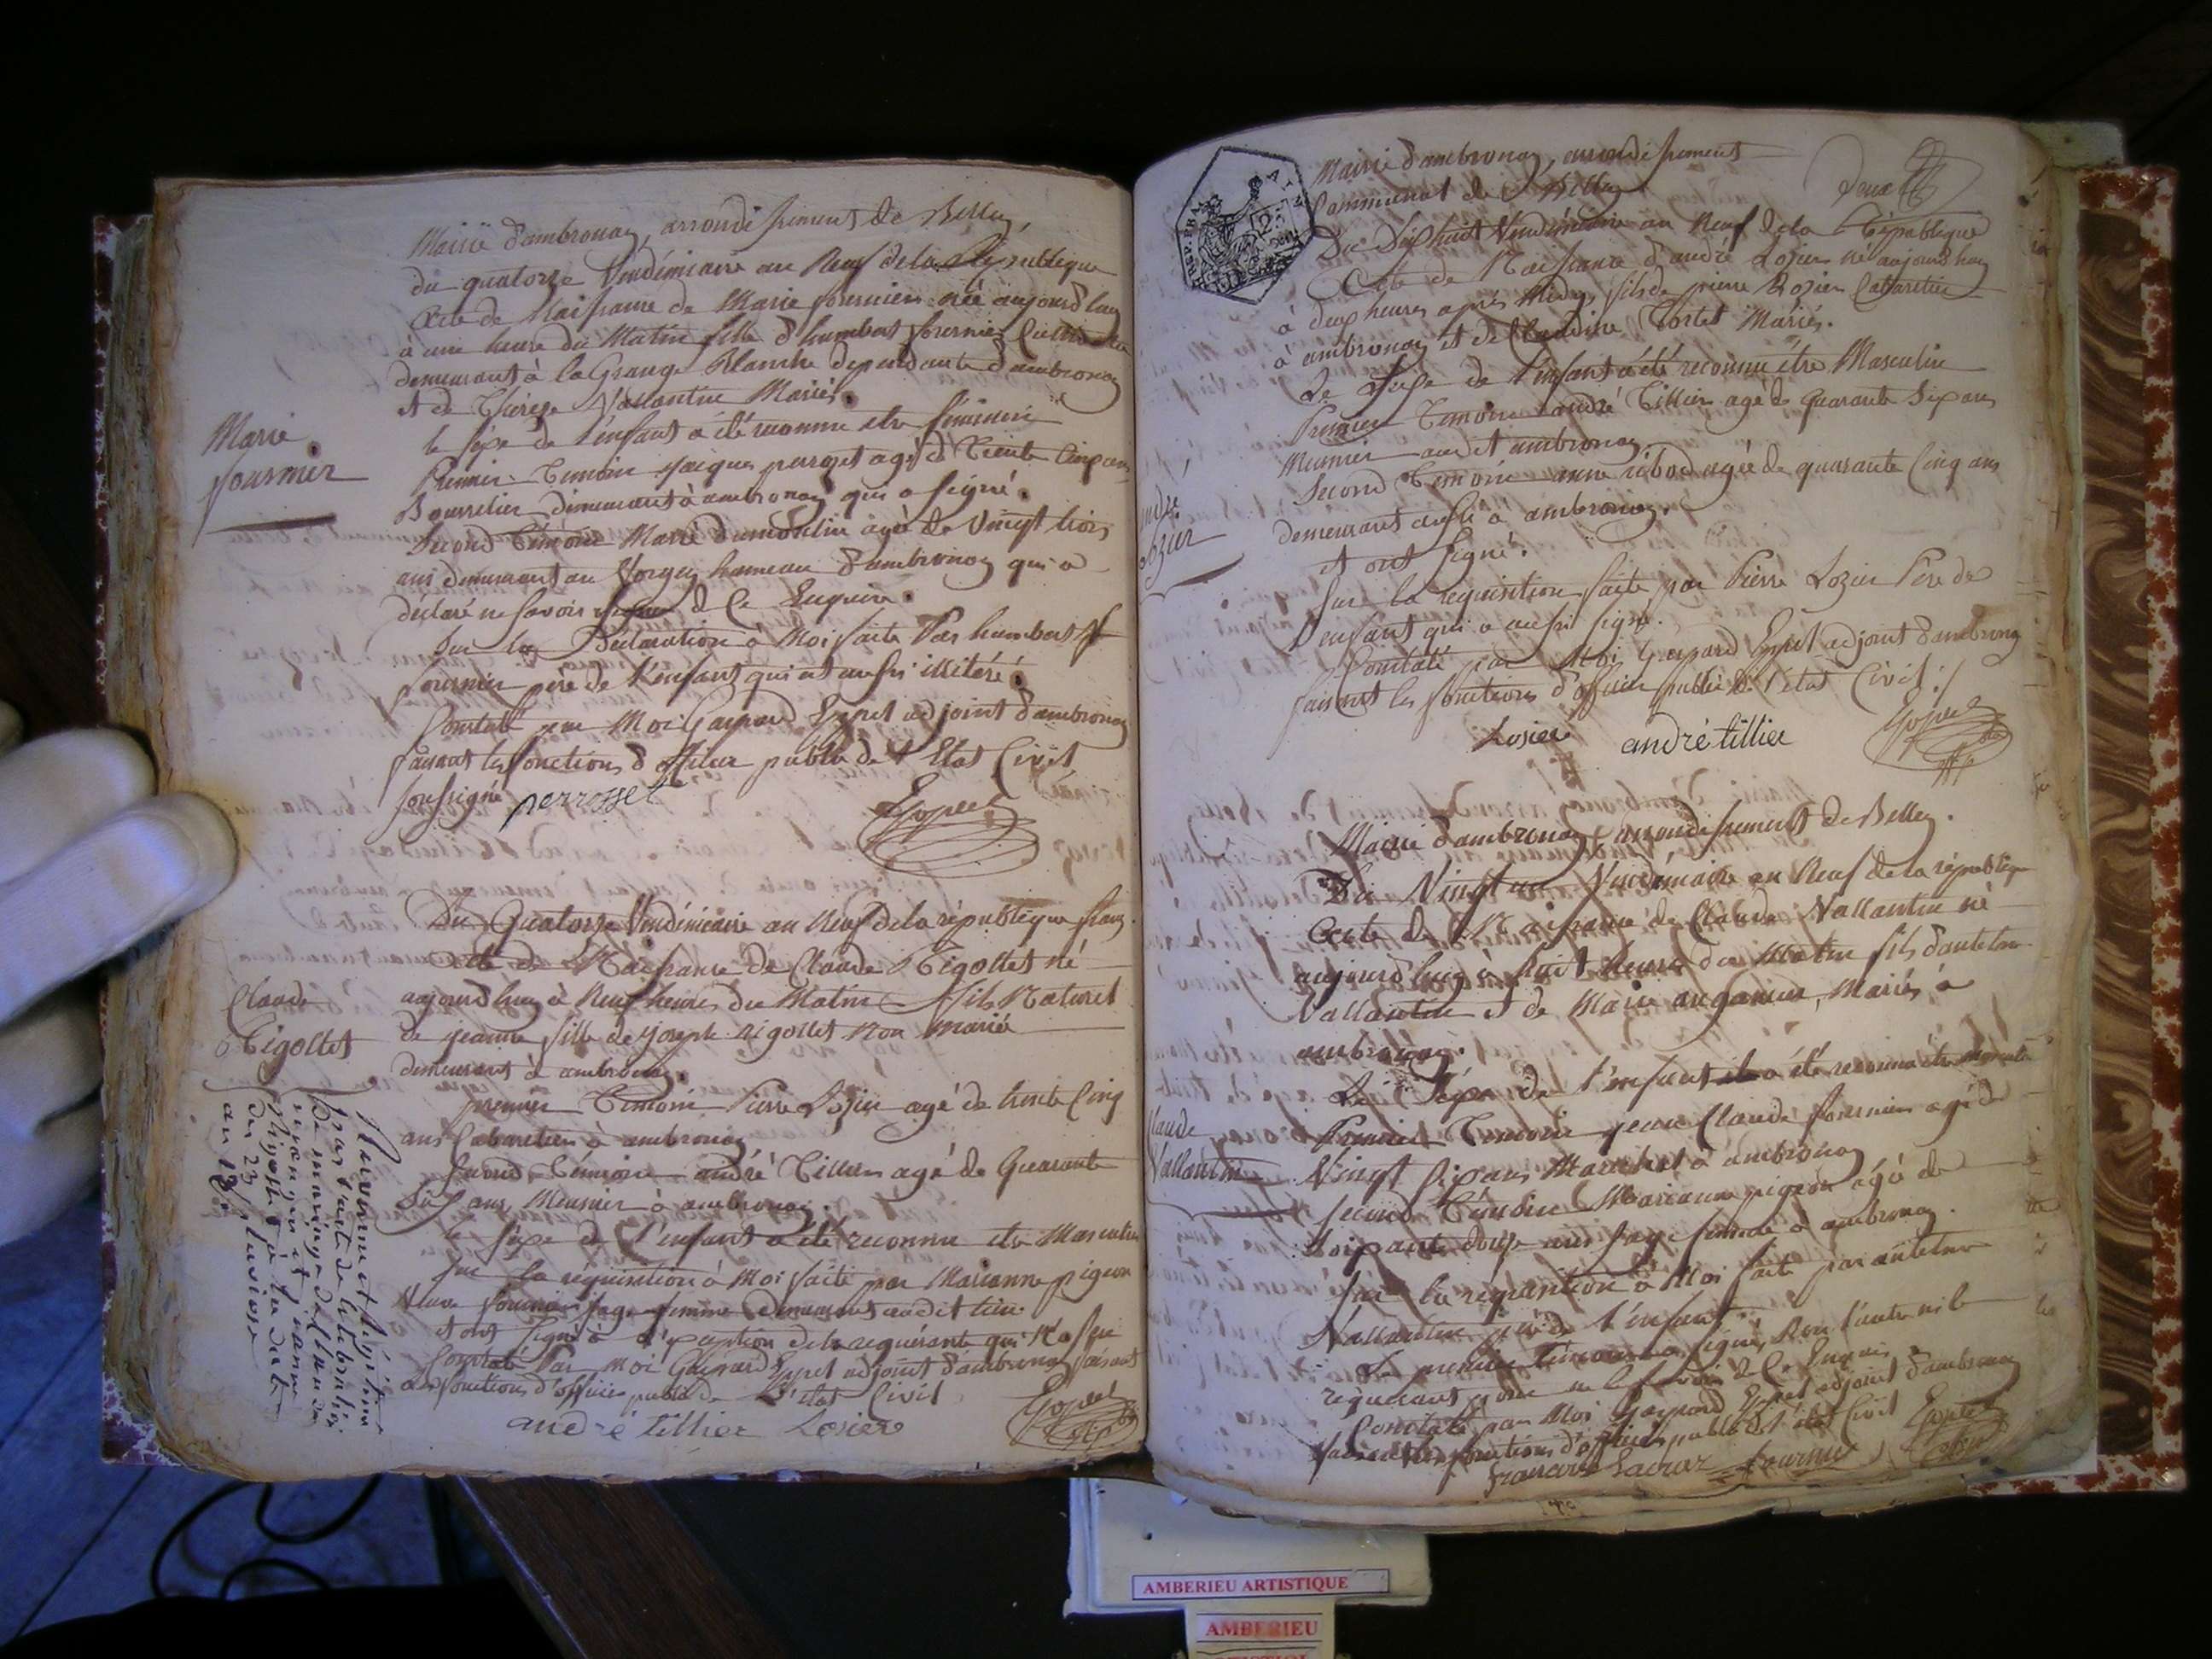 Mairie d'ambronay, arrondissement de Belley,
du quatorze Vendémiaire an Neuf de la République
Acte de Naissance de Marie fournier née aujourd'huy
à une heure du Matin fille d'humbert fournier
demeurant à la Grange Blanche dependante d'ambronay
et de Thérèze Vallantin Mariés.
le sexe de l'enfant a été reconnu etre feminin
Marie
fournier
Premier Temoin jacques perrozet agé de Trente Cinq ans
Bourrelier demeurant à ambronay qui a signé.
Second Témoin Marie dumoulin agée de Vingt trois
ans demeurant au Vorgey hameau d'ambronay qui a
déclaré ne savoir signer de ce Enquise.
Sur la Déclaration à Moi faite Par humbert
fournier père de l'enfant qui est aussi illitéré.
Constaté par Moi Gaspard Eypel adjoint d'ambronay
faisant les fonctions d'officier public de l'Etat Civil
soussigné perrosset
Du Quatorze Vendémiaire an Neuf de la république franç.
Acte de Naissance de Claude Rigollet né
aujourd'huy à Neuf heures du Matin fils Naturel
de jeanne fille de joseph rigollet non mariée
demeurant à ambronay.
Claude
Rigollet
premier Temoin Pierre Lozier agé de trente Cinq
ans Cabaretier à ambronay
Second Témoin andré Tillier agé de Quarante
Six ans, Meunier à ambronay.
le sexe de l'enfant a été reconnu etre Masculin
Sur la réquisition à Moi faite par Marianne pigeon
Veuve fournier sage femme demeurant audit lieu
et ont signé à l'exception de la requérante qui N'a seu
Constaté Par Moi Gaspard Eypel adjoint d'ambronay faisant
les fonctions d'officier public de L'état Civil
andré tillier Losier
par l'acte de célébration
de mariage de
et jeanne
Rigollet à la date
du 23 pluviose
Mairie d'ambronay, arrondissement
Communal de Belley
Deux
Du Dix huit Vendémiaire an Neuf de la République
Acte de Naissance d'andré Lozier né aujourd'huy
à deux heures après Midy, fils de pierre Lozier Cabaretier
à ambronay et de Claudine Tortet Mariés.
Le Sexe de l'enfant a été reconnu être Masculin
Premier Temoin andré Tillier agé de quarante Six ans
Meunier audit ambronay.
Second Temoin anne ribod agée de quarante Cinq ans
demeurant aussi à ambronay.
et ont signé.
Sur la requisition faite par Pierre Lozier Père de
l'enfant qui a aussi signé.
Constaté par Moi Gaspard Eypel adjoint d'ambronay
faisant les fonctions d'officier public de l'état Civil
Losier andré tillier
Mairie d'ambronay, arrondissement de Belley.
Du Vingt un Vendémiaire an Neuf de la république
Acte de Naissance de Claude Vallantin né
aujourd'huy à huit heures du Matin fils d'antelme
Vallantin et de Marie Mariés à
ambronay.
Le Sexe de l'enfant a été reconnu être
Claude
Vallantin
Premier Temoin jean Claude fournier agé de
Vingt six ans Maréchal à ambronay
Second Témoin Marianne pigeon agée de
Soixante douze ans sage femme à ambronay.
Sur la requisition à Moi faite par antelme
Vallantin père de l'enfant.
Le premier Temoin a signé, Non l'autre ni le
requerant pour ne le savoir de ce Enquis
Constaté par Moi Gaspard Eypel adjoint d'ambronay
faisant les fonctions d'officier public de l'état Civil
fournier
AMBERIEU ARTISTIQUE
AMBERIEU